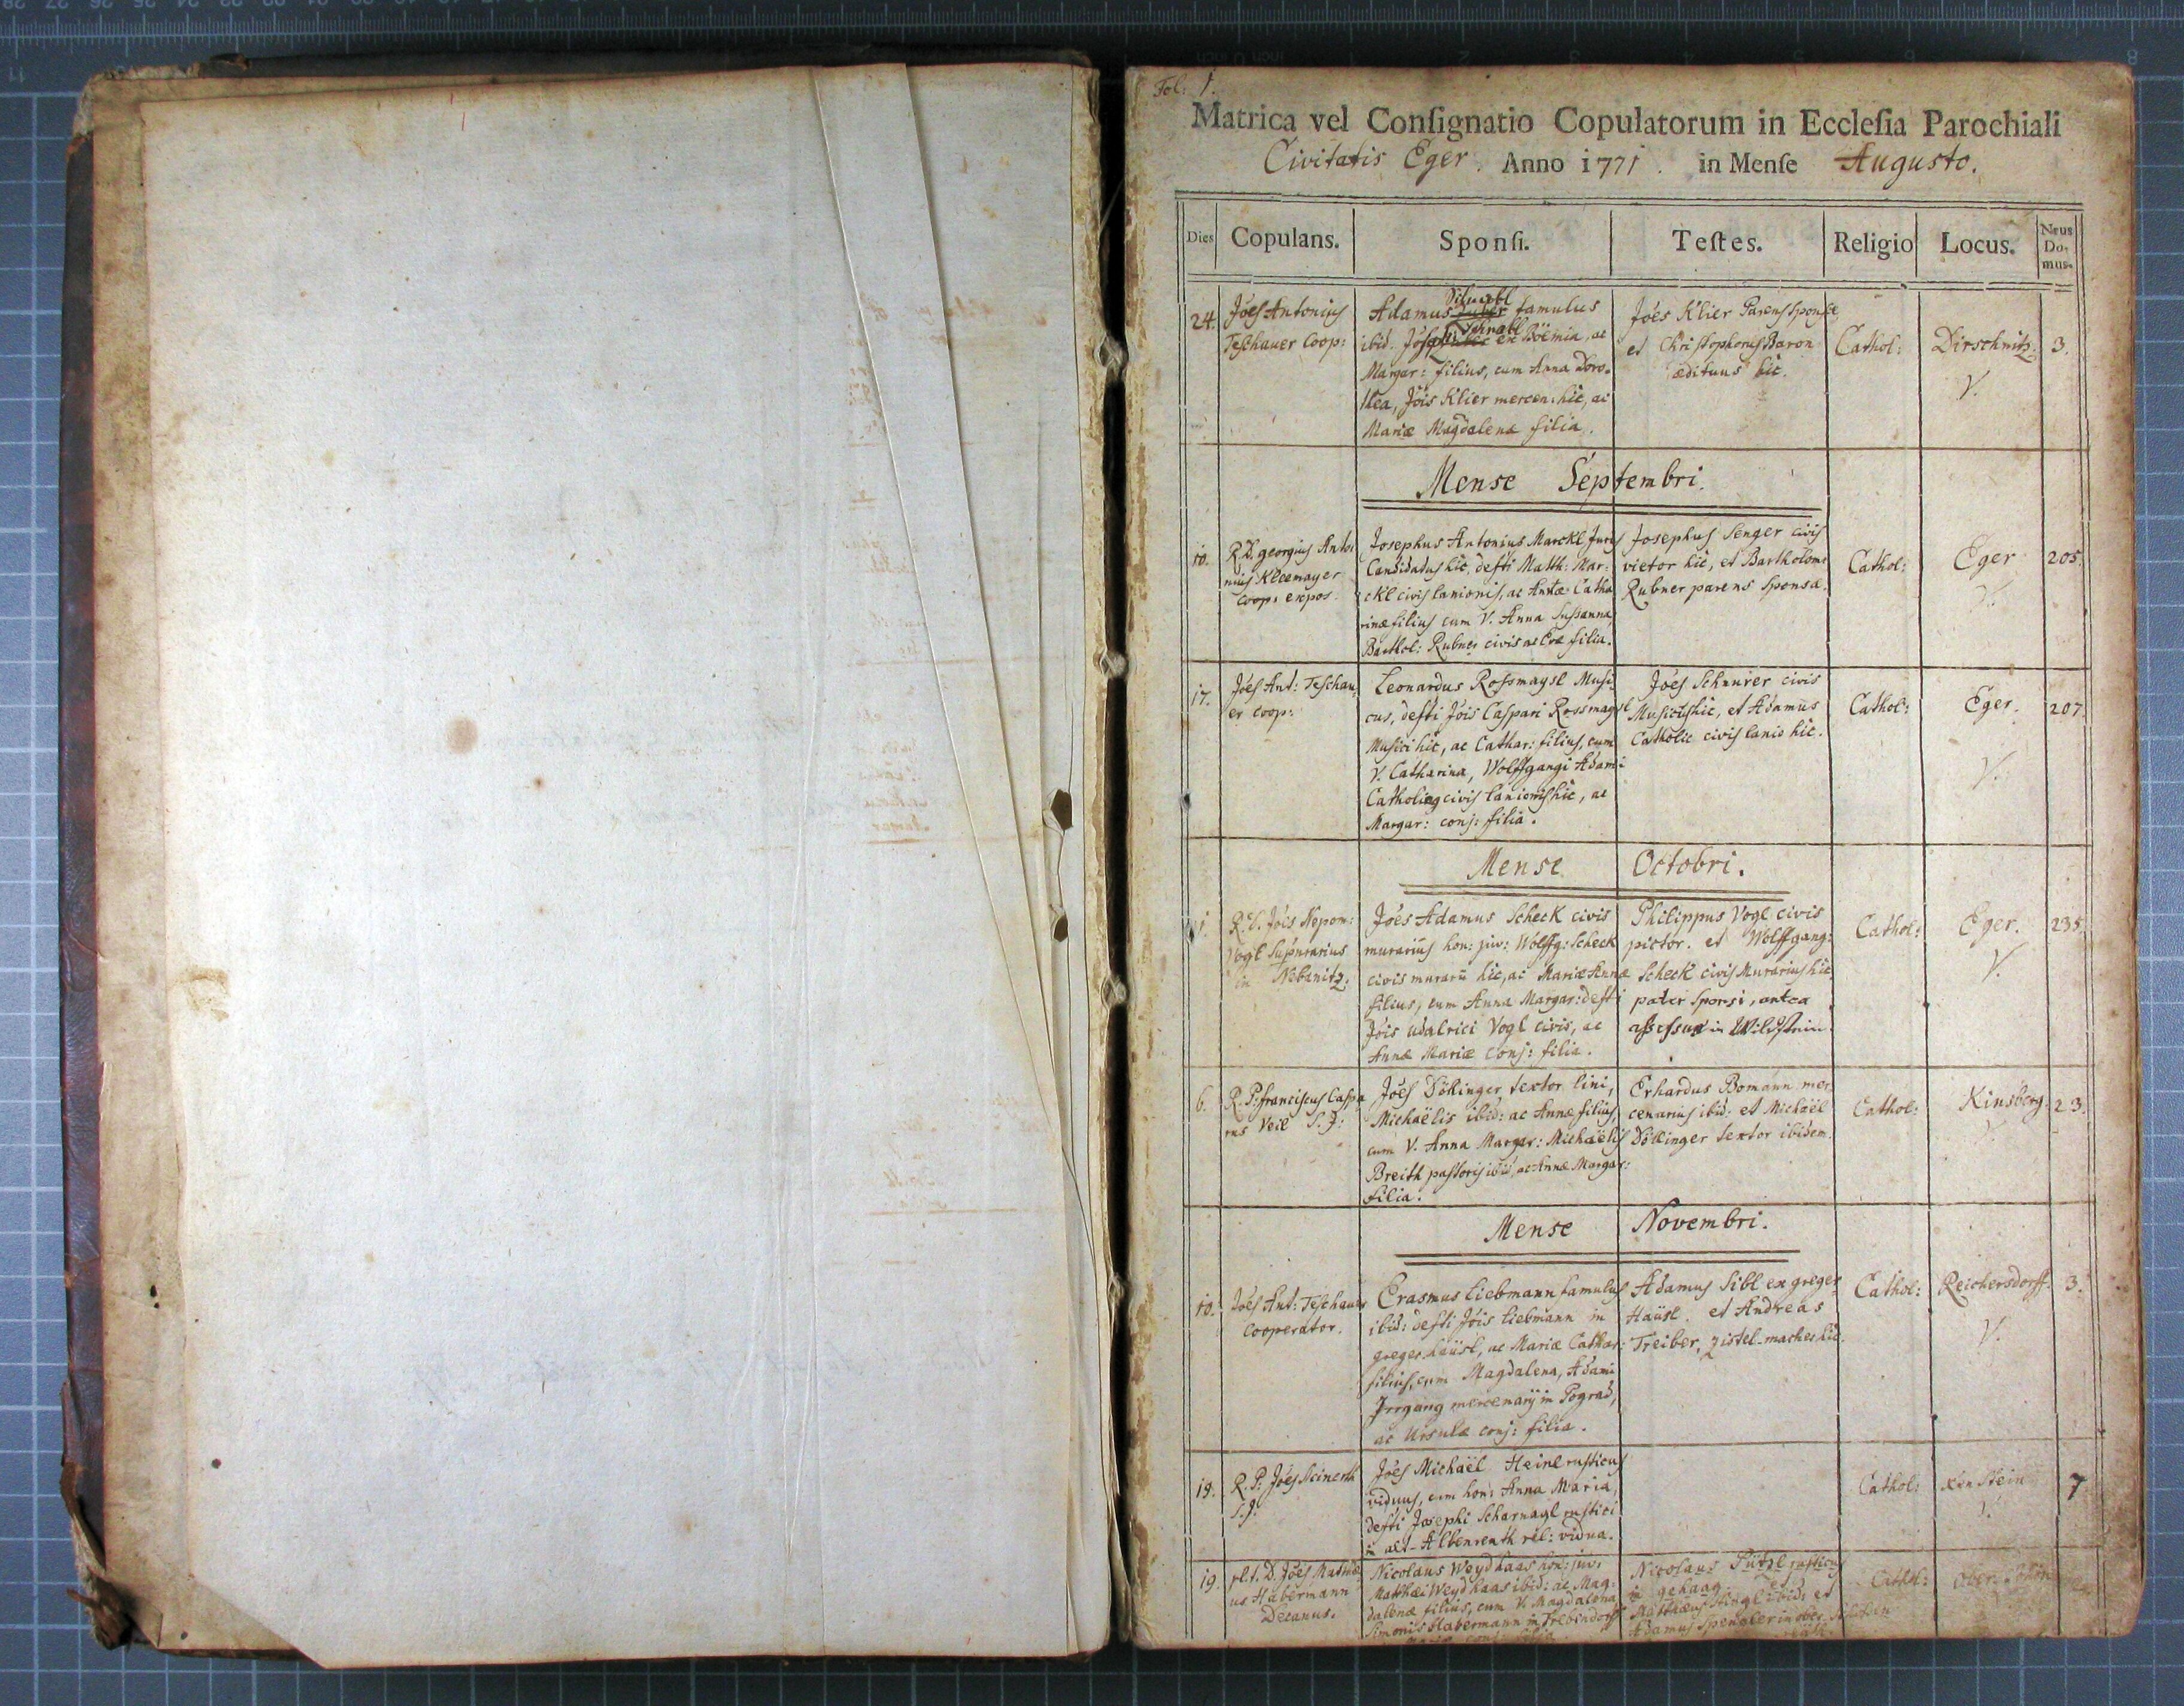 Fol: 1.
Matrica vel Conſignatio Copulatorum in Eccleſia Parochiali
Civitatis Eger. Anno 1771. in Menſe Augusto.
Dies
Copulans.
Sponſi.
Teſtes.
Religio
Locus.
Nrus
Do-
mus.
24.
Jóes Antonius
Teschauer Coop:
Adamus famulus
Schnabl
ibid. ex Böemia, ac
Margar: filius, cum Anna Doro-
thea, Jóis Klier mercen: hic, ac
Mariæ Magdalenæ filia.
Jóes Klier Parens Sponsæ
et Christophorus Baron
ædituus hic.
Cathol:
Dirschnitz.
V.
3.
Mense Septembri.
10.
R.D. georgius Anto-
nius Kleemayer
coop: expos.
Josephus Antonius Marckl Juris
Candidatus hic, defti Matth: Mar-
ckl civis lanionis, ac Catha
rinæ filius cum V. Anna Sussanna
Barthol: Rubner civis ac Evæ filia.
Josephus Senger civis
vietor hic, et Bartholom:
Rubner parens Sponsæ.
Cathol:
Eger
V.
205.
17.
Jóes Ant: Teschau-
er coop:
Leonardus Rossmaysl Musi-
cus, defti Jóis Caspari Rossmaysl
Musici hic, ac Cathar: filius, cum
V. Catharina, Wolffgangi Adami
civis lanionis hic, ac
Margar: conj: filia.
Jóes Schnurer civis
Musicus hic, et Adamus
Catholic civis lanio hic.
Cathol:
Eger.
V.
207.
Mense Octobri.
1.
R.D. Jóis Nepom:
Vogl
in Nebanitz.
Jóes Adamus Scheck civis
murarius hon: juv: Wolffg: Scheck
civis murarii hic, ac Mariæ Annæ
filius, cum Anna Margar: defti
Jóis Udalrici Vogl civis, ac
Annæ Mariæ conj: filia.
Philippus Vogl civis
pictor. et Wolffgang:
Scheck civis Murarius hic
pater Sponsi, antea
in Wildstein
Cathol:
Eger.
V.
235.
6.
R.P. franciscus Caspa
rus Veil S.J:
Jóes Dölinger textor lini,
Michaëlis ibid: ac Annæ filius,
cum V. Anna Margar: Michaëlis
Breith pastoris ibid, ac Annæ Margar:
filia.
Erhardus Bomann mer
cenarius ibid: et Michaël
Döllinger textor ibidem.
Cathol:
Kinsberg.
V.
23.
Mense Novembri.
10.
Jóes Ant: Teschauer
Cooperator.
Erasmus Liebmann famulus
ibid: defti Jóis Liebmann in
gregerhäusl, ac Mariæ Cathar:
filius, cum Magdalena, Adami
Jrrgang mercenarÿ in Pograd,
ac Ursulæ conj: filia.
Adamus Sibl ex greger
Haüsl. et Andreas
Treiber, zistel-macher hic.
Cathol:
Reichersdorff.
V.
3.
19.
R.P. Jóes
S.J.
Jóes Michaël Heinl rusticus
viduus, cum hon: Anna Maria,
defti Josephi Scharnagl rustici
in alt-Albenreuth rel: vidua.
Cathol:
V.
7
19.
D. Jóes
us Habermann
Decanus.
Nicolaus Weydhaas hon: juv:
Matthæi Weydhaas ibid: ac Mag-
dalenæ filius, cum V. Magdalena
Simonis Habermann in Trebendorff
conj: filia
Nicolaus rusticus
in gehaag
Matthæus ibid: et
Adamus Spengler in ober-
Cathol:
Ober-